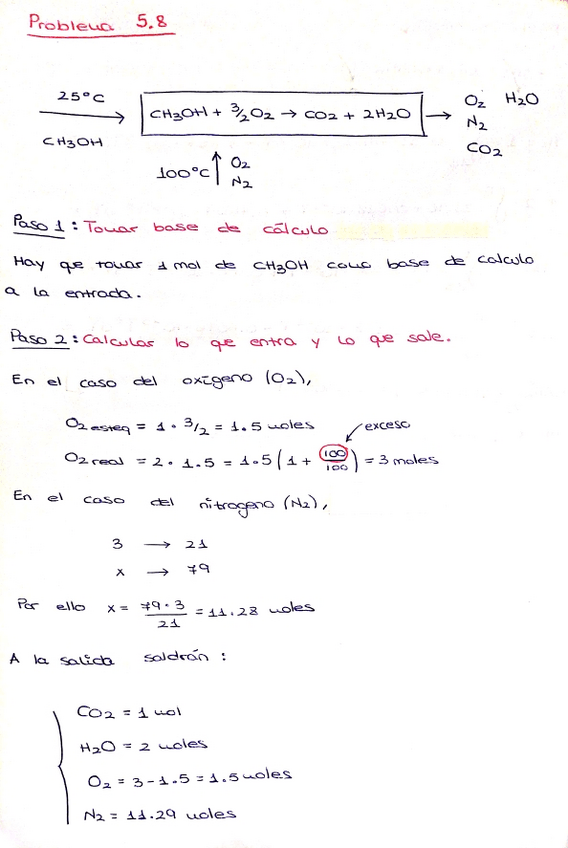 Problema 5.8
25°C
CH3OH
CH3OH + 3/2 O2 → CO2 + 2H2O
O2 H2O
N2
CO2
100°C
O2
N2
Paso 1: Tomar base de cálculo
Hay que tomar 1 mol de CH3OH como base de calculo
a la entrada.
Paso 2: Calcular lo que entra y lo que sale.
En el caso del oxígeno (O2),
O2 esteq = 1 · 3/2 = 1.5 moles
exceso
O2 real = 2 · 1.5 = 1.5 (1 + 100/100) = 3 moles
En el caso del nitrogeno (N2),
3 → 21
x → 79
Por ello x = 79·3/21 = 11.28 moles
A la salida saldrán:
CO2 = 1 mol
H2O = 2 moles
O2 = 3 - 1.5 = 1.5 moles
N2 = 11.29 moles